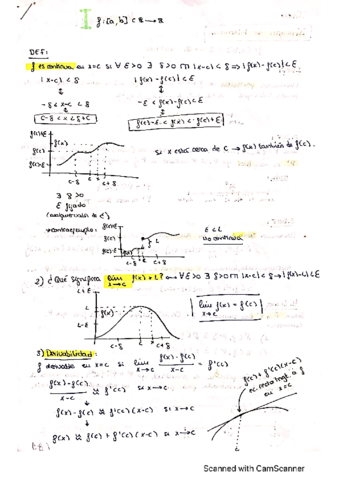 I f: [a,b] ⊂ ℝ → ℝ
DEF:
f es continua en x=c si ∀ E>0 ∃ δ>0 |x-c| < δ ⇒ |f(x)-f(c)| < E
|x-c| < δ |f(x)-f(c)| < E
-δ < x-c < δ -E < f(x)-f(c) < E
c-δ < x < δ+c f(c)-E < f(x) < f(c)+E
f(c)+E
f(x)
f(c)
f(c)-E
c-δ c x c+δ
si x está cerca de c → f(x) también de f(c).
∃ δ>0
E fijado
(cualquiera de E)
→ contraejemplo:
f(c)+E
f(c)
L
c-δ c c+δ
E < L
No continua
2) ¿Qué significa lim x→c f(x) = L? ⟺ ∀ E>0 ∃ δ>0 |x-c| < δ → |f(x)-L| < E
L+E
L
f(x)
L-E
c-δ c+δ
lim x→c f(x) = f(c)
3) Derivabilidad:
f derivable en x=c si lim x→c f(x)-f(c) / x-c = f'(c)
f(x)-f(c) / x-c ≈ f'(c) si x→c
f(x)-f(c) ≈ f'(c)(x-c) si x→c
f(x) ≈ f(c) + f'(c)(x-c) si x→c
f(c)+f'(c)(x-c)
ec. recta tang. a f
en x=c
Scanned with CamScanner